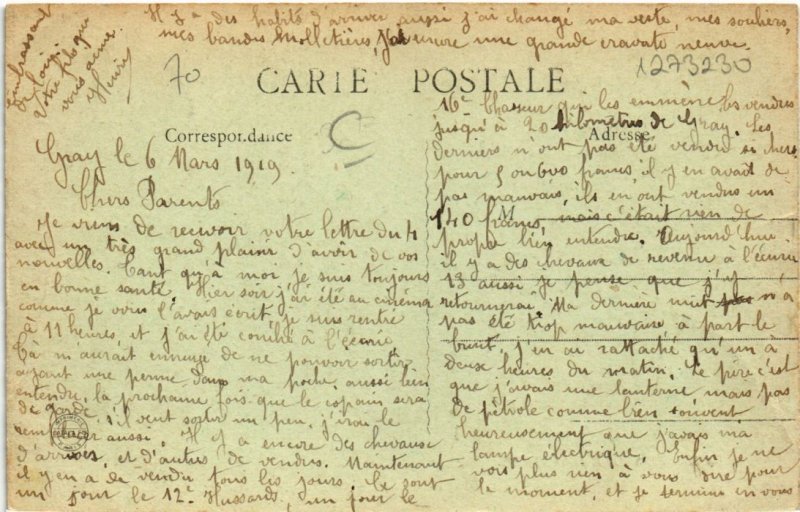 Il y a des habits d'arriver aussi j'ai changé ma veste, mes souliers,
mes bandes molletières, j'ai encore une grande cravate neuve.
70
1273230
CARTE POSTALE
Correspondance
Adresse
C
Gray le 6 Mars 1919
Chers Parents
Je viens de recevoir votre lettre du 4
avec un très grand plaisir d'avoir de vos
nouvelles. Tant qu'à moi je suis toujours
en bonne santé. Hier soir j'ai été au cinéma
comme je vous l'avais écrit, je suis rentré
à 11 heures, et j'ai été couché à l'écurie.
Cà m'aurait ennuyé de ne pouvoir sortir
ayant une perme dans ma poche, aussi bien
entendre, la prochaine fois que le copain sera
de garde, s'il veut sortir un peu, j'irai le
remplacer aussi. Il y a encore des chevaux
d'arrivés, et d'autres de vendus. Maintenant
il y en a de vendu tous les jours. Ce sont
un jour le 12e Hussards, un jour le
16e Chasseur qui les emmène les vendres
jusqu'à 20 kilomètres de Gray. Les
derniers n'ont pas été vendu si chers
pour 5 ou 600 francs, il y en avait de
pas mauvais, ils en ont vendus un
140 francs, mais c'était rien de
M
propre bien entendre. Aujourd'hui
il y a des chevaux de revenu à l'écurie
13 aussi je pense que j'y
retournerai. Ma dernière nuit n'a
pas été trop mauvaise, à part le
bruit, j'en ai rattaché qu'un à
deux heures du matin. Le pire c'est
que j'avais une lanterne mais pas
de pétrole comme bien souvent
heureusement que j'avais ma
lampe électrique. Enfin je ne
vois plus rien à vous dire pour
le moment, et je termine en vous
embrassant
de loin.
Votre fils qui
vous aime.
Henri